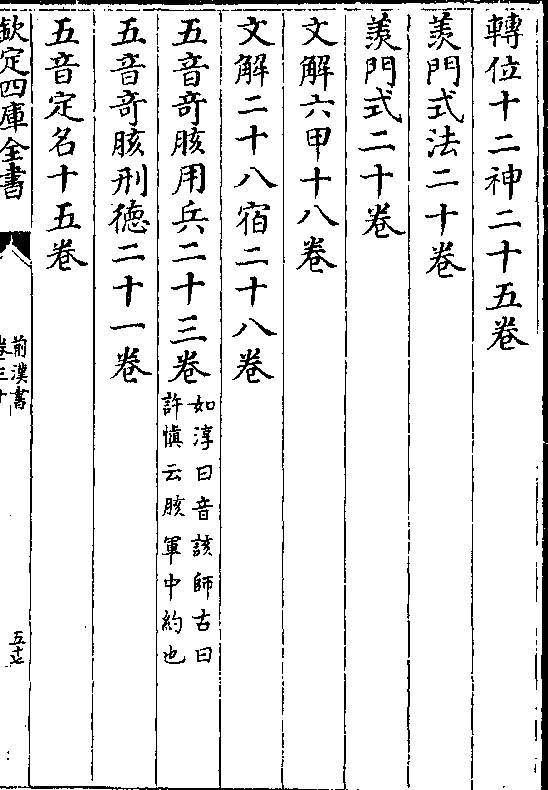 轉位十二神二十五卷
羨門式法二十卷
羨門式二十卷
文解六甲十八卷
文解二十八宿二十八卷
五音竒胲用兵二十三卷如淳曰音該師古曰許慎云胲軍中約也
五音竒胲刑徳二十一卷
五音定名十五卷
欽定四庫全書
前漢書
卷三十